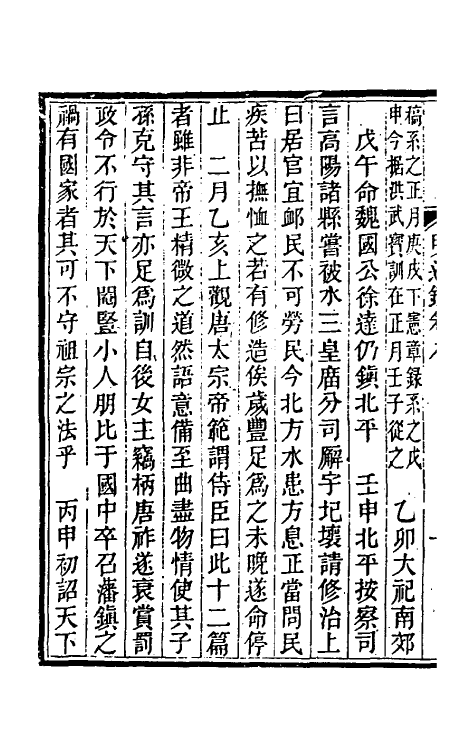 稿系之正月庚戌下憲章録系之戊
申今据洪武寶訓在正月壬子從之
乙卯大祀南郊
戊午命魏國公徐達仍鎭北平　壬申北平按察司
言高陽諸縣嘗被水三皇廟分司廨宇圮壞請修治上
曰居官宜䘏民不可勞民今北方水患方息正當問民
疾苦以撫恤之若有修造俟歲豐足爲之未晚遂命停
止　二月乙亥上觀唐太宗帝範謂侍臣曰此十二篇
者雖非帝王精微之道然語意備至曲盡物情使其子
孫克守其言亦足爲訓自後女主竊柄唐祚遂衰賞罰
政令不行於天下閹豎小人朋比于國中卒召藩鎭之
禍有國家者其可不守祖宗之法乎　丙申初詔天下